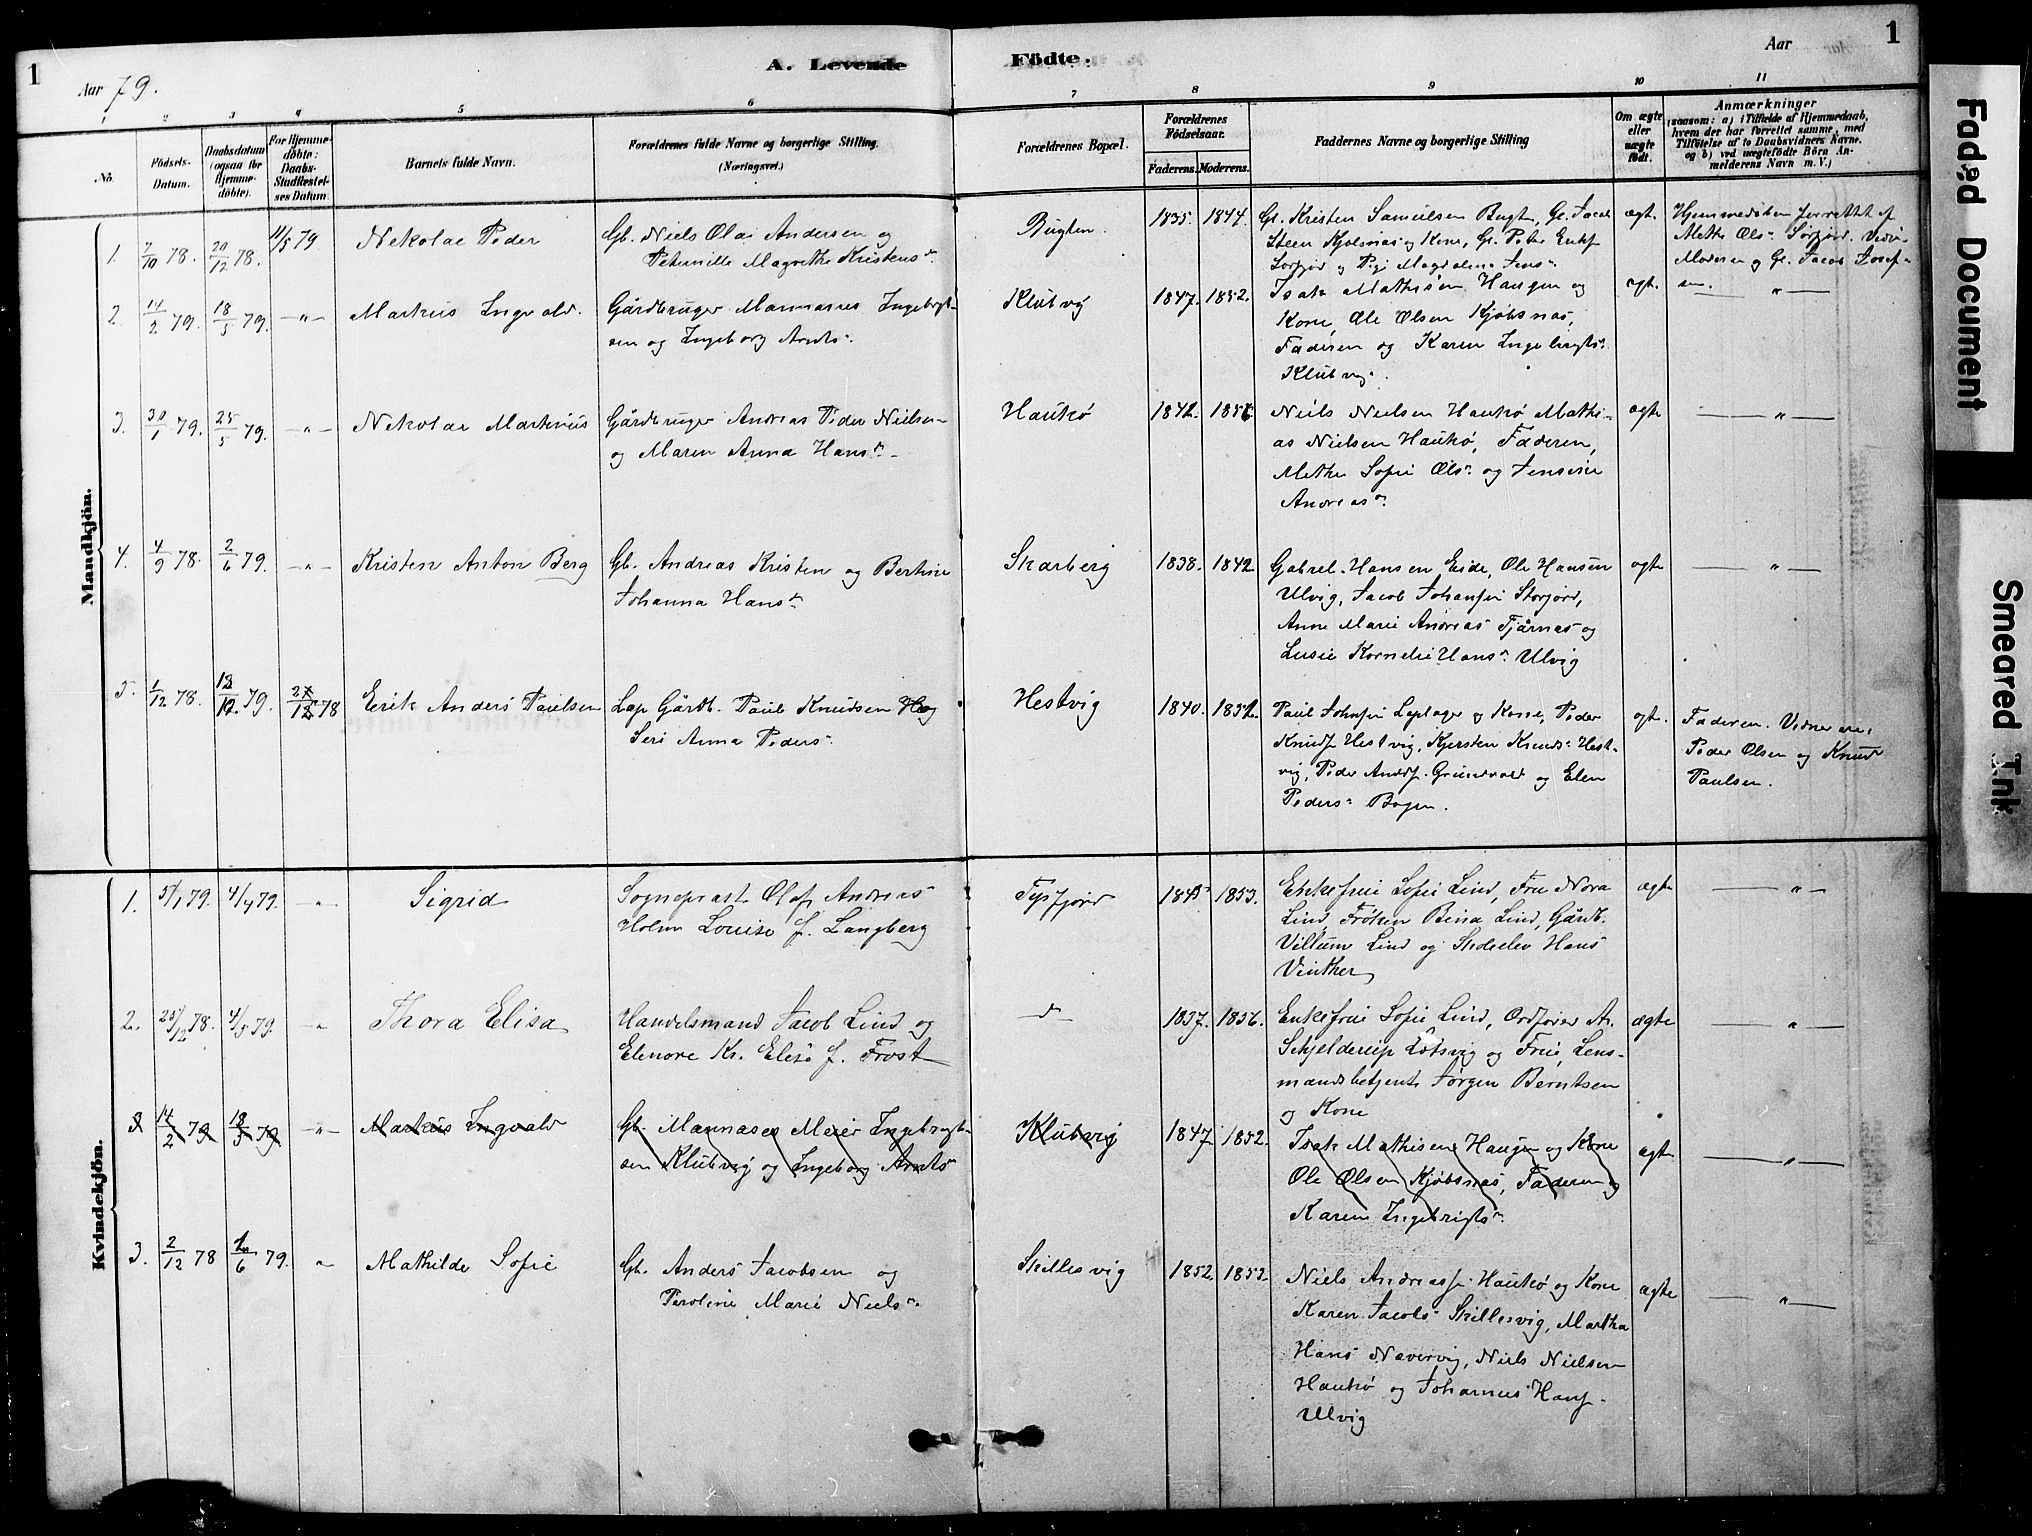 1
A. Levende
Födte.
Aar
1
Aar 79.
1 2 3 4 5 6 7 8 9 10 11
No.
Födsels-Datum.
Daabsdatum (ogsaa for Hjemme-döbte).
For Hjemme-döbte: Daabs-Stadfæstel-ses Datum
Barnets fulde Navn.
Forældrenes fulde Navne og borgerlige Stilling.
(Næringsvei.)
Forældrenes Bopæl.
Forældrenes Födselsaar.
Faderens. Moderens.
Faddernes Navne og borgerlige Stilling
Om ægte eller uægte födt.
Anmærkninger
(saasom: a) i Tilfælde af Hjemmedaab,
hvem der har forrettet samme, med
Tilföielse af to Daabsvidners Navne,
og b) ved uægtefödte Börn An-
melderens Navn m. V.)
Mandkjön.
1. 7/10 78. 29/12 78. 11/5 79. Nekolai Peder
Gb. Niels Olai Andersen og
Peternille Magrethe Kristens d.
Bugten. 1835. 1844.
Gb. Kristen Samuelsen Bugt, Gb. Jacob
Steen Kjølsnæs og Kone, Gb. Peter Eriks.
Sorfjor og Pige Magdalena Jens d.
ægt.
Hjemmedøben forrettet af
Mette Ols d. Sorfjord. Vidner
Moderen og Gb. Jacob Josef-
sen.
2. 14/2 79. 18/5 79. —"— Markus Ingvald.
Gårdbruger Mannasses Ingebrigt-
sen og Ingeborg Arnts d.
Klubvig 1847. 1852.
Isak Mathisen Haugen og
Kone, Ole Olsen Kjøbsnæs,
Faderen og Karen Ingebrigts d.
Klubvig.
ægt. —"—
3. 30/1 79. 25/5 79. —"— Nekolai Martinius
Gårdbruger Andreas Peder Nielsen
og Maren Anna Hans d. –
Haukø 1842. 1851
Niels Nielsen Haukø Mathi-
as Nielsen Haukø, Faderen,
Methe Sofie Ols d. og Jensine
Andreas d.
ægte —"—
4. 4/9 78. 2/6 79. —"— Kristen Anton Berg
Gb. Andreas Kristen og Bertine
Johanna Hans d.
Skarberg 1838. 1842
Gabrel Hansen Eide, Ole Hansen
Ulvig, Jacob Johansen Storjord,
Anne Marie Andreas Tjårnæs og
Lusie Kornelie Hans d. Ulvig
ægte —"—
5. 1/12 78. 12 79. 27/12 78 Erik Anders Paulsen
Lap Gårdb. Paul Knudsen og
Seri Anna Peders d.
Hestvig 1840. 1831.
Paul Johnsen Laplager og Kone, Peder
Knuds. Hestvig, Kjersten Knuds d. Hest-
vig, Peder Ands. Grundvold og Elen
Peders d. Bogen.
ægt.
Faderen. Vidner ere,
Peder Olsen og Knud
Paulsen.
Kvindekjön.
1. 5/1 79. 4/4 79. " Sigrid
Sognepræst Olaf Andreas
Holm Louise f. Langberg
Tysfjord 1845 1853.
Enkefrue Sofie Lind, Frue Nora
Lind, Frøken Bina Lind, Gårdb.
Villum Lind og Skoleelev Hans
Vinther
ægte —"—
2. 25/12 78. 4/5 79. " Thora Elisa
Handelsmand Jacob Lind og
Elenore Kr. Elise f. Frost
—"— 1837. 1856.
Enkefrue Sofie Lind, Ordfører A.
Schjelderup Kobsvig og Frue, Lens-
mandsbetjent Jørgen Berntsen
og Kone
ægte —"—
3 14/2 79 18/5 79 —"— Markus Ingvald
Gb. Mannases Meier Ingebrigt-
sen Klubvig og Ingeborg Arnts
Klubvig 1847 1852.
Isak Mathisen Haugen og Kone
Ole Olsen Kjøbsnæs, Faderen og
Karen Ingebrigts d.
ægt —"—
3. 2/12 78 1/6 79. " Mathilde Sofie
Gb. Anders Jacobsen og
Peroline Marie Niels d.
Skillesvig 1852. 1852
Niels Andreass. Haukø og Kone
Karen Jacobs Skillesvig, Martha
Hans Nævervig, Niels Nielsen
Haukø og Johannes Hans.
Ulvig
ægte —"—
Faded Document
Smeared Ink